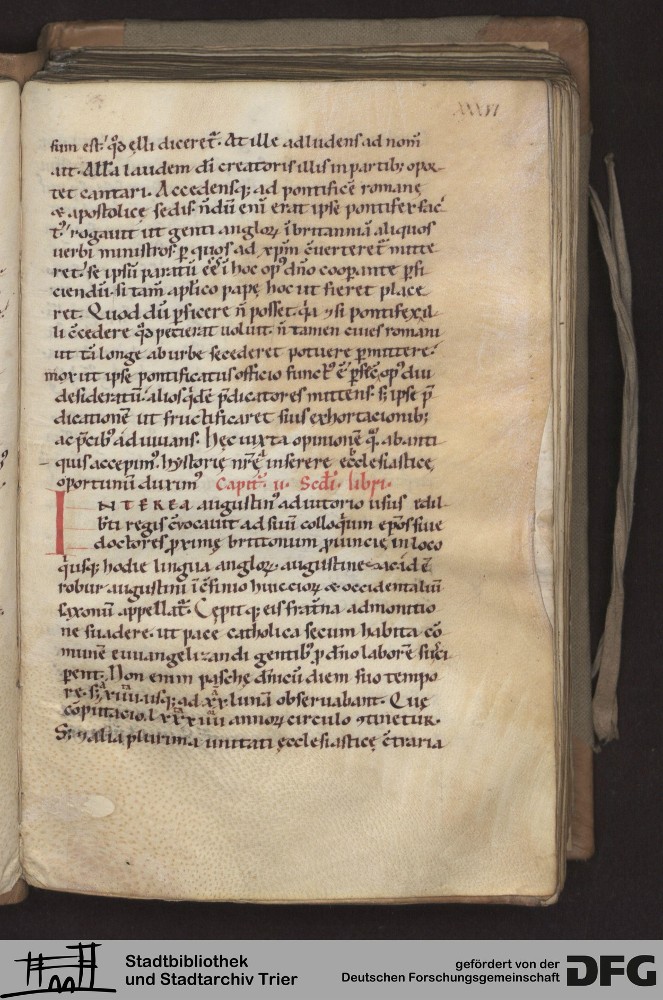 XXXVI
sum est. qđ ęlli diceret̃. At ille adludens ad nom̃
ait. All'a laudem dī creatoris illis in partib; opor
tet cantari. Accedensq; ad pontificẽ romanę
& apostolicę sedis. ñdũ eni erat ipse pontifex fac
t'. rogauit ut genti angloꝝ ī britanniã aliquos
uerbi ministros. ꝑ quos ad xp̄m c̄uerteret̃ mitte
ret. se ipsũ paratũ ẽẽ ĩ hoc op' dño cooꝑante ꝑfi
ciendũ. si tam̃ apl'ico papę hoc ut fieret place
ret. Quod dũ ꝑficere ñ posset. q'a &si pontifex il
li c̄cedere qđ petierat uoluit. ñ tamen ciues romani
ut tã longe ab urbe secederet potuere ꝑmittere.
mox ut ipse pontificatus officio funct' ẽ ꝑfec̄. op' diu
desideratũ. alios q'dẽ p̄dicatores mittens. s; ipse p̄
dicationẽ ut fructificaret suis exhortacionib;
ac p̄cib' adiuuans. Hęc iuxta opinionẽ q̃ ab anti
quis accepim'. hystorię nr̃ę inserere ecclesiasticę
oportunũ duxim' Capit̃. ii. Scd̃i. libri.
INTEREA augustin' adiutorio usus edil
b̃ti regis c̄uocauit ad suũ colloq̃um ep̃os siue
doctores ꝓximę brittonum ꝓuincię. in loco
q'usq; hodie lingua angloꝝ. augustines ac id ẽ
robur augustini ĩ c̄finio huiccioꝝ & occidentaliũ
saxonũ appellat̃. Cępitq; eis frat̃na admonitio
ne suadere. ut pace catholica secum habita cõ
munẽ euuangelizandi gentib' ꝓ dño laborẽ susci
perent. Non enim paschę dñicũ diem suo tempo
re. s; a xiiii usq; ad xx lunã obseruabant. Quę
cõputacio. lxxxiiii annoꝝ circulo ꝯtinetur.
S; & alia plurima unitati ęcclesiasticę c̄traria
Stadtbibliothek
und Stadtarchiv Trier
gefördert von der
Deutschen Forschungsgemeinschaft
DFG